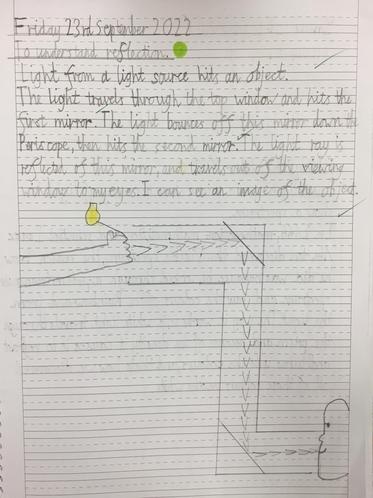 Friday 23rd September 2022
To understand reflection.
Light from a light source hits an object.
The light travels through the top window and hits the
first mirror. The light bounces off this mirror down the
Periscope, then hits the second mirror. The light ray is
reflected of this mirror, and travels out of the viewing
window to my eyes. I can see an image of the object.